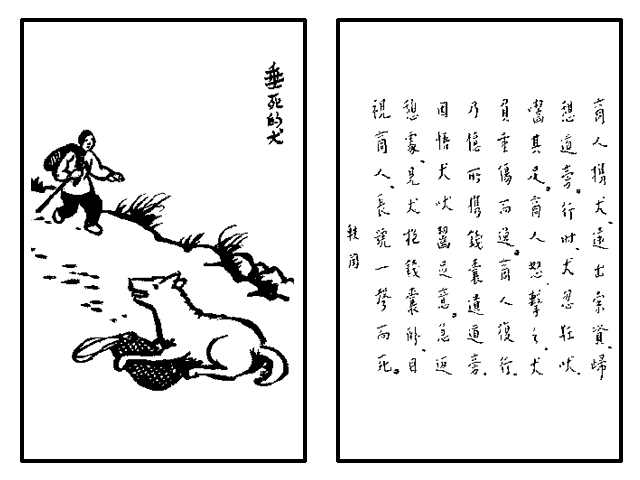 垂死的犬
商人攜犬、遠出索資、歸
憩道旁。行时、犬忽狂吠、
嚙其足。商人怒、擊之、犬
負重傷而逸。商人復行、
乃憶所攜錢囊遺道旁、
因悟犬吠齧足意。急返
憩處、見犬抱錢囊卧、目
視商人、長號一聲而死。
軼聞